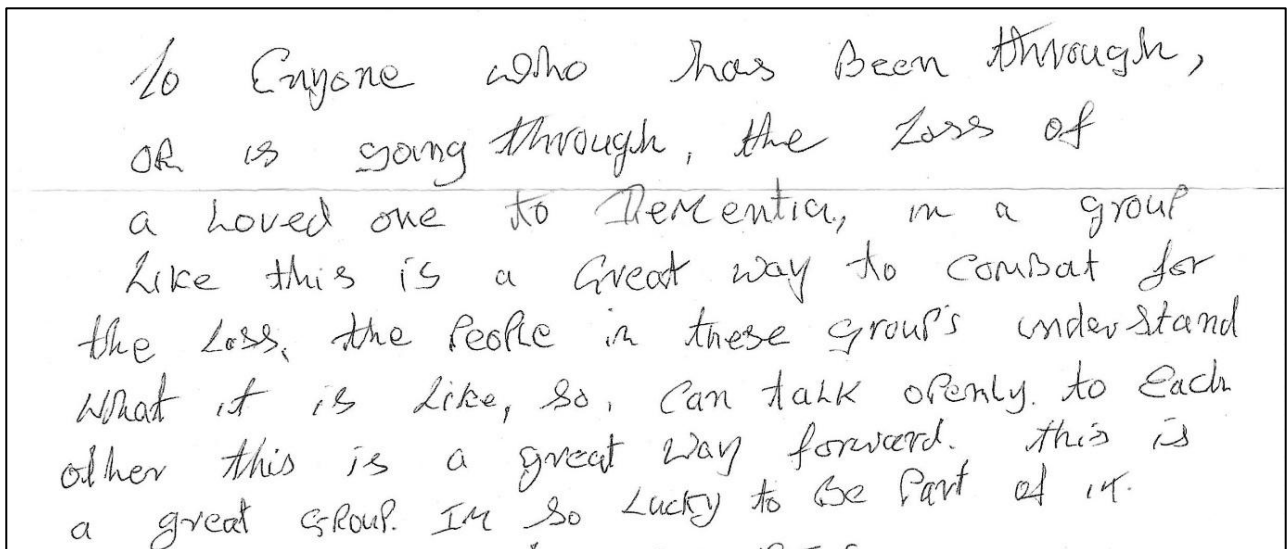 To Enyone who has Been through,
OR is going through, the Loss of
a Loved one to Dementia, in a group
Like this is a Great way to comBat for
the Loss, the PeoPle in these grouP's understand
what it is Like, so, can talk oPenly. to Each
other this is a great way forward. this is
a great GRouP. IM so Lucky to Be Part of it.